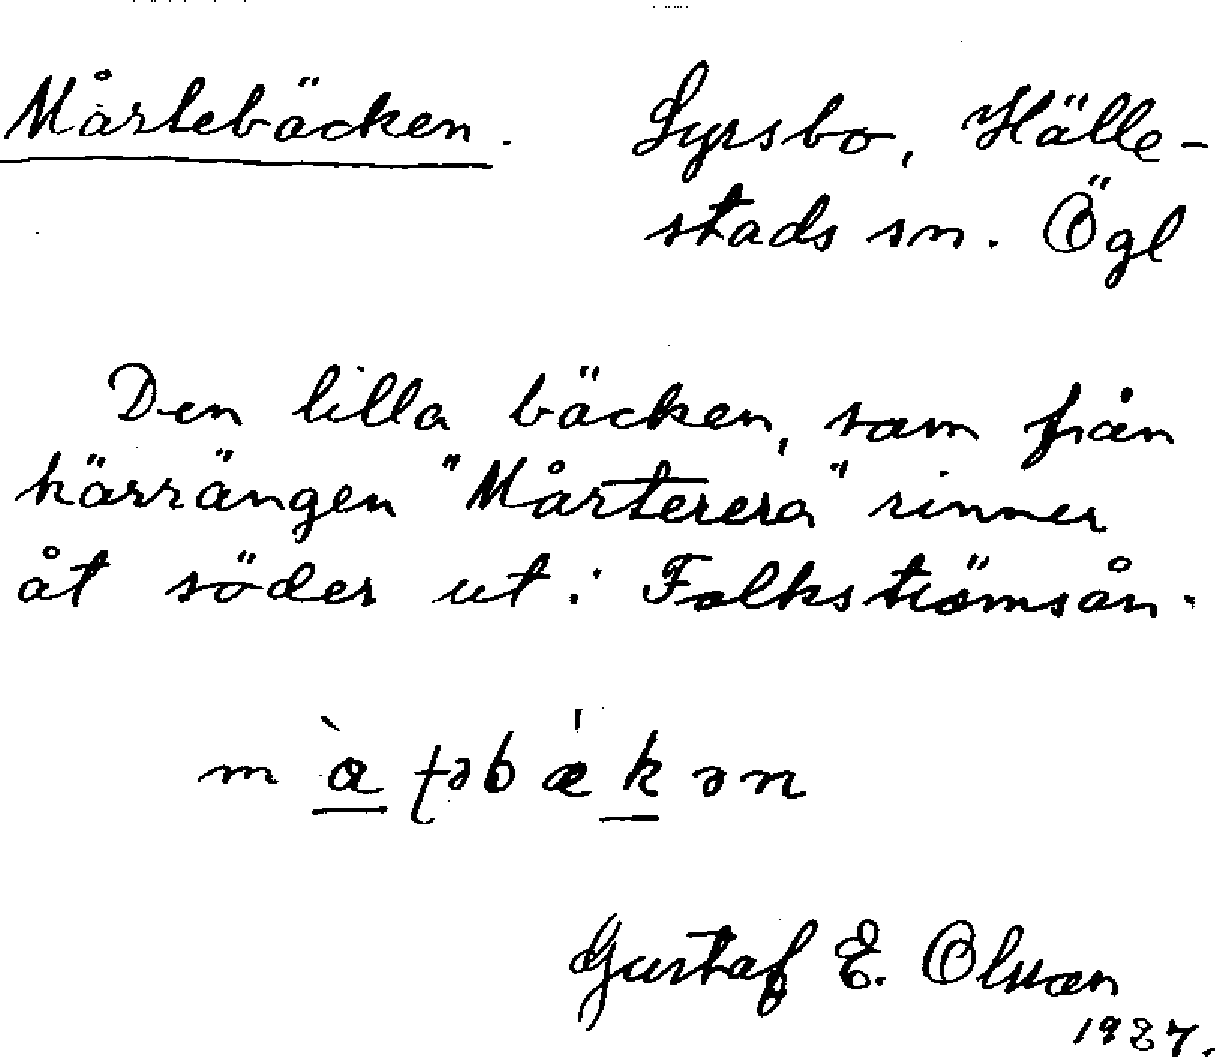 Mårtebäcken. Syrsbo, Hälle-
stads sn. Ögl
Den lilla bäcken, som från
kärrängen "Mårterera" rinner
åt söder ut i Folkströmsån.
m à ʈəb ǽ k ən
Gustaf E. Olsson
1937.